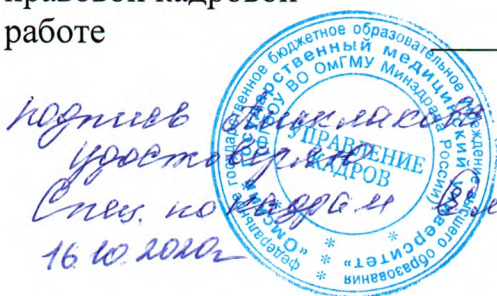 правовой кадровой
работе
подпись
удостоверяю
Спец. по кадрам
16.10.2020г
федеральное государственное бюджетное образовательное учреждение высшего образования
государственный медицинский университет"
ФГБОУ ВО ОмГМУ Минздрава России
УПРАВЛЕНИЕ
КАДРОВ